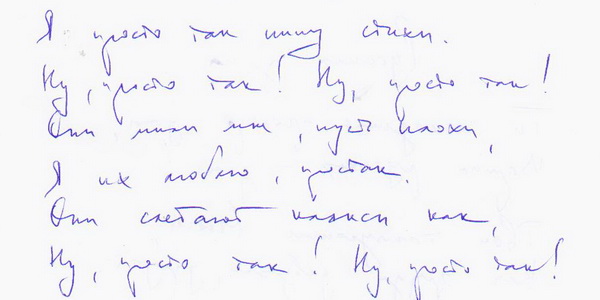 Я просто так пишу стихи.
Ну, просто так! Ну, просто так!
Они милы мне, пусть плохи,
Я их люблю, простак.
Они слетают как,
Ну, просто так! Ну, просто так!